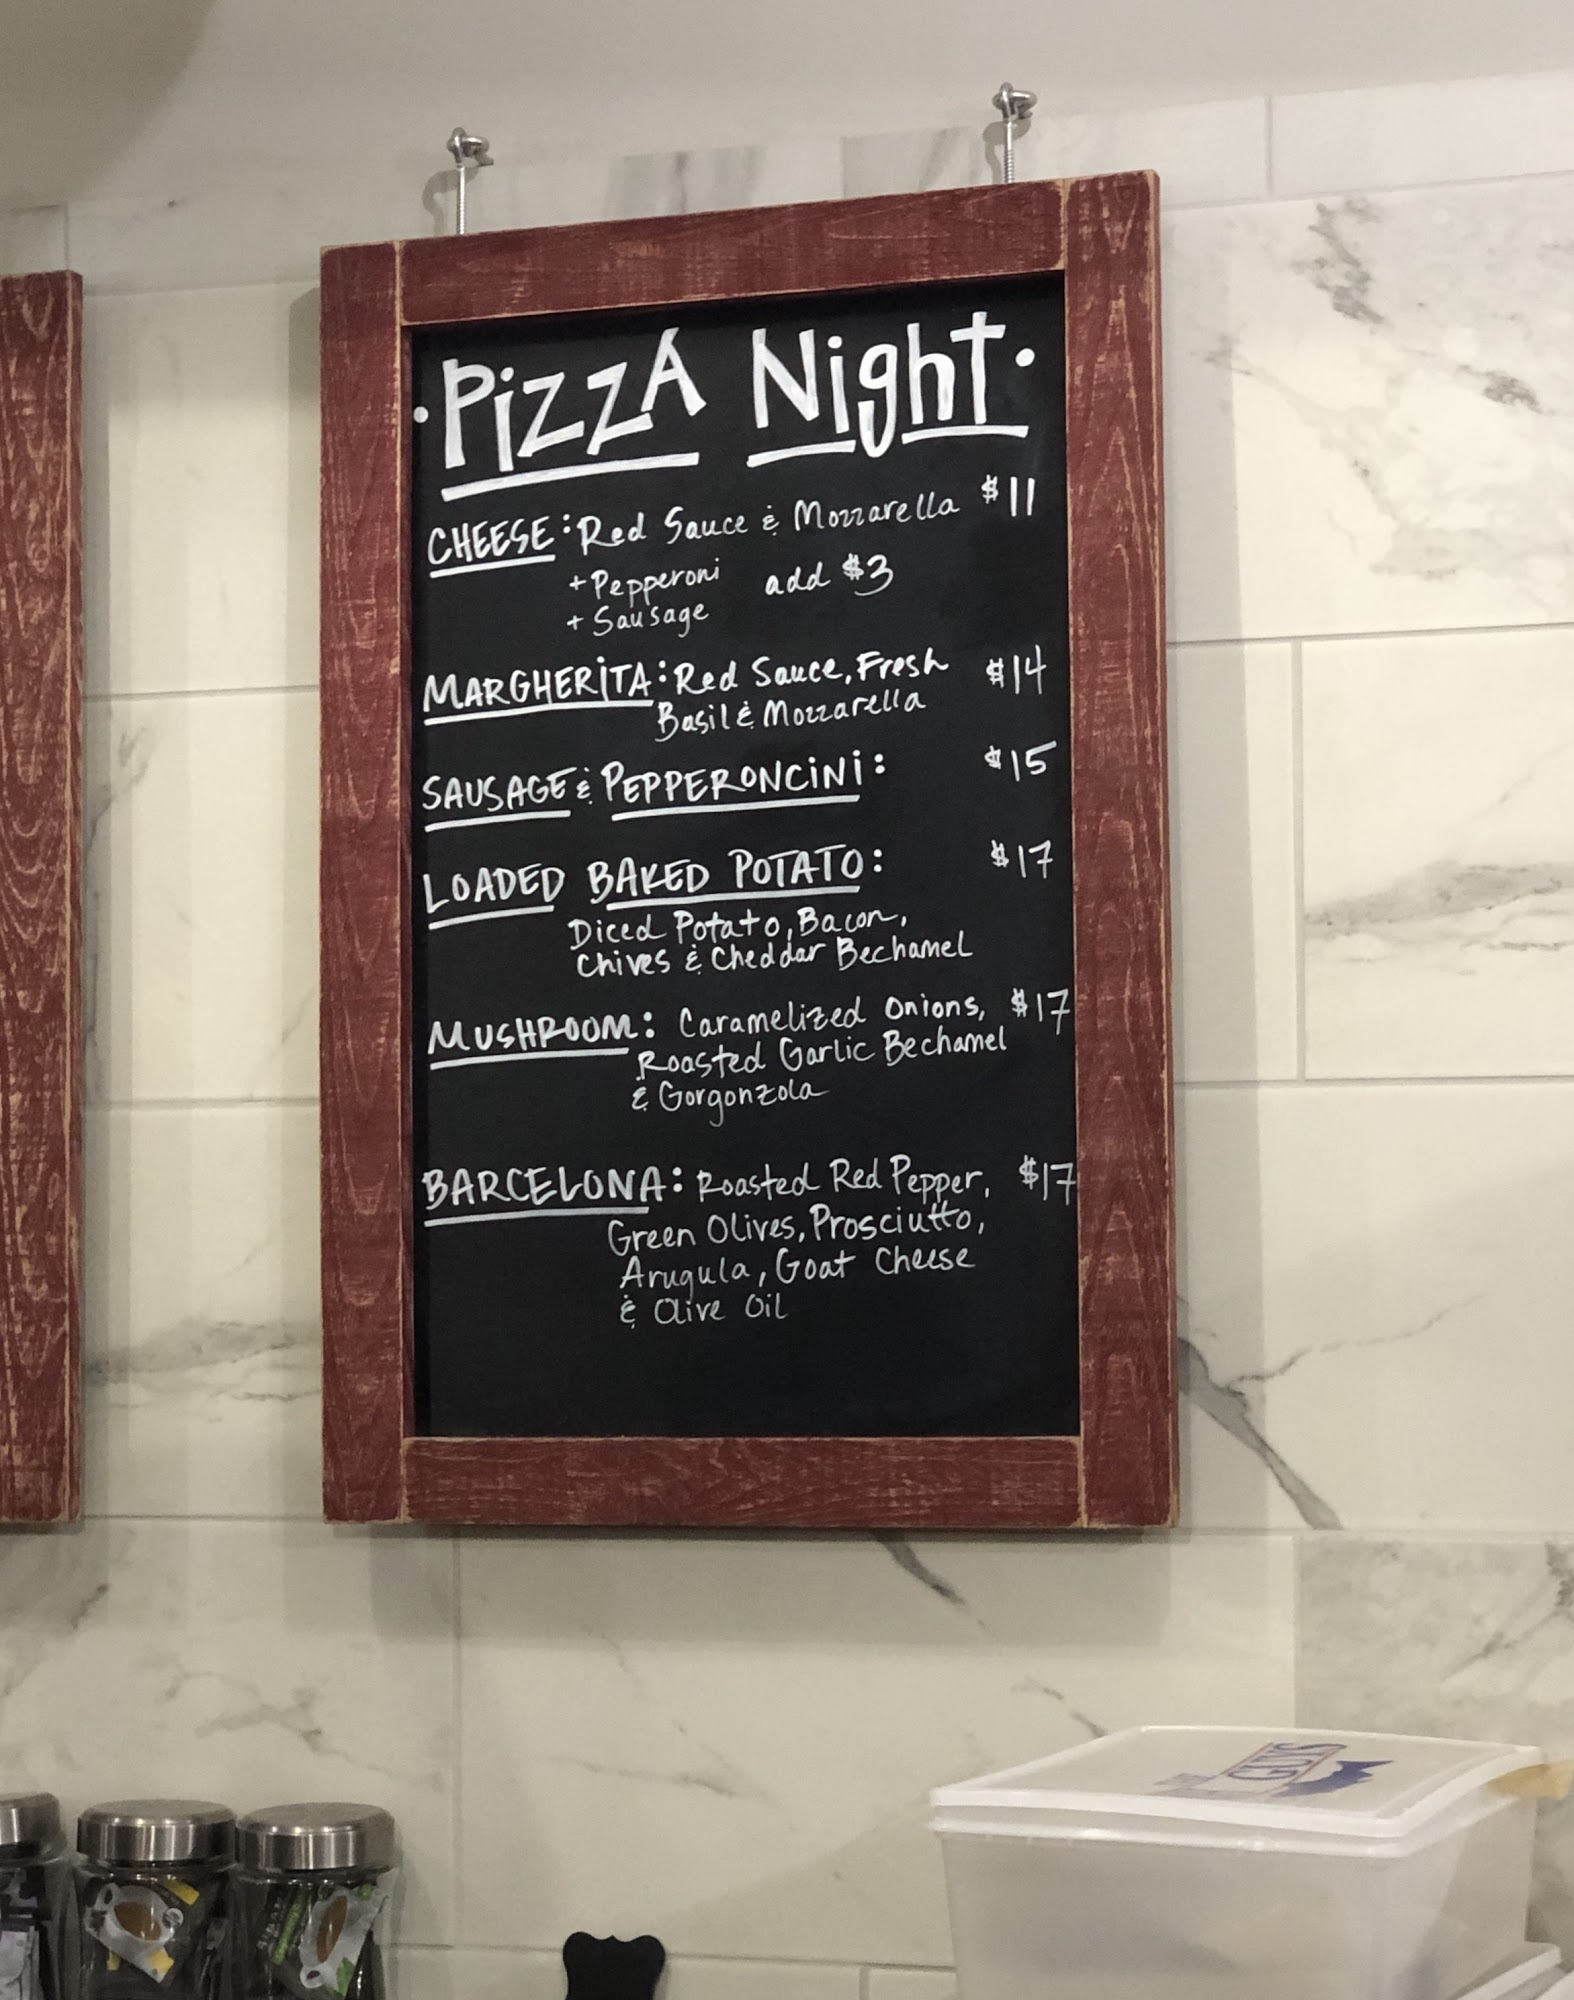 ·PizzA Night·
CHEESE: Red Sauce & Mozzarella $11
+Pepperoni add $3
+ Sausage
MARGHERiTA: Red Sauce, Fresh $14
Basil & Mozzarella
SAUSAGE & PEPPERONCiNi: $15
LOADED BAKED POTATO: $17
Diced Potato, Bacon,
Chives & Cheddar Bechamel
MUSHROOM: Caramelized Onions, $17
Roasted Garlic Bechamel
& Gorgonzola
BARCELONA: Roasted Red Pepper, $17
Green Olives, Prosciutto,
Arugula, Goat Cheese
& Olive Oil
GUYS